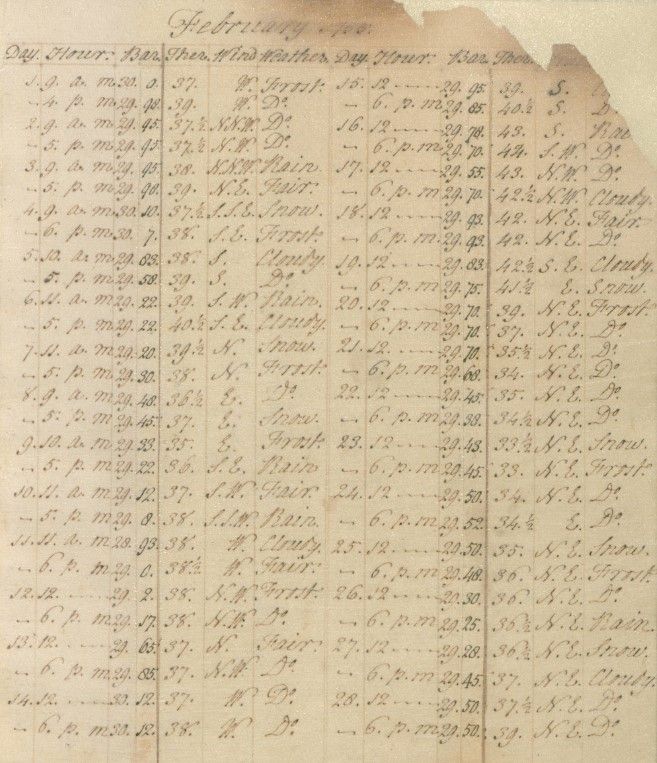 February
Day. Hour. Bar. Ther. Wind Weather. Day. Hour. Bar. Ther.
1. 9. a. m 30. 0. 37. W. Frost. 15. 12 — 29. 95. 39. S.
— 4. p. m 29. 98. 39. W. Do. — 6. p. m 29. 85. 40½ S. D
2. 9. a. m 29. 95. 37.½ N.N.W. Do. 16. 12 — 29. 78. 43. S. Rai
— 5. p. m 29. 95. 37.½ N.W. Do. — 6. p. m 29. 70. 44. S.W. Do.
3. 9. a. m 29. 95. 38. N.N.W. Rain. 17. 12 — 29. 55. 43. N.W. Do.
— 5. p. m 29. 90. 39. N.E. Fair. — 6. p. m 29. 70. 42½ N.W. Cloudy.
4. 9. a. m 30. 10. 37½ S.S.E. Snow. 18. 12 — 29. 93. 42. N.E. Fair.
— 6. p. m 30. 7. 38. S.E. Frost. — 6. p. m 29. 93. 42. N.E. Do.
5. 10. a. m 29. 83. 38. S. Cloudy. 19. 12 — 29. 83. 42½ S.E. Cloudy.
— 5. p. m 29. 58. 39. S. Do. — 6. p. m 29. 75. 41½ E. Snow.
6. 11. a. m 29. 22. 39. S.W. Rain. 20. 12 — 29. 70. 39. N.E. Frost.
— 5. p. m 29. 22. 40½ S.E. Cloudy. — 6. p. m 29. 70. 37. N.E. Do.
7. 11. a. m 29. 20. 39½ N. Snow. 21. 12 — 29. 70. 35½ N.E. Do.
— 5. p. m 29. 30. 38. N. Frost. — 6. p. m 29. 68. 34. N.E. Do.
8. 9. a. m 29. 48. 36½ E. Do. 22. 12 — 29. 45. 35. N.E. Do.
— 5. p. m 29. 45. 37. E. Snow. — 6. p. m 29. 38. 34½ N.E. Do.
9. 10. a. m 29. 33. 35. E. Frost. 23. 12 — 29. 43. 33½ N.E. Snow.
— 5. p. m 29. 22. 36. S.E. Rain — 6. p. m 29. 45. 33. N.E. Frost.
10. 11. a. m 29. 12. 37. S.W. Fair. 24. 12 — 29. 50. 34. N.E. Do.
— 5. p. m 29. 8. 38. S.S.W. Rain. — 6. p. m 29. 52. 34½ E. Do.
11. 11. a. m 28. 93. 38. W. Cloudy. 25. 12 — 29. 50. 35. N.E. Snow.
— 6. p. m 29. 0. 38½ W. Fair. — 6. p. m 29. 48. 36. N.E. Frost.
12. 12. — 29. 2. 38. N.W. Frost. 26. 12 — 29. 30. 36. N.E. Do.
— 6. p. m 29. 17. 38. N.W. Do. — 6. p. m 29. 25. 36½ N.E. Rain.
13. 12. — 29. 65. 37. N. Fair. 27. 12 — 29. 28. 36½ N.E. Snow.
— 6. p. m 29. 85. 37. N.W. Do. — 6. p. m 29. 45. 37. N.E. Cloudy.
14. 12. — 30. 12. 37. W. Do. 28. 12 — 29. 50. 37½ N.E. Do.
— 6. p. m 30. 12. 38. W. Do. — 6. p. m 29. 50. 39. N.E. Do.